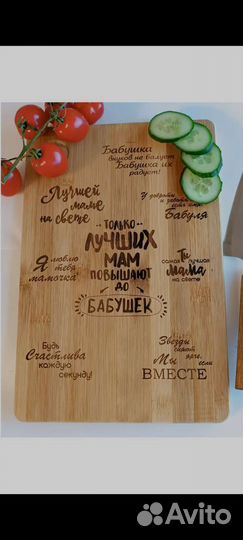 Бабушка
внуков не балует
Бабушка их
радует!
Лучшей
маме
на свете
У доброты
и
есть имя
Бабуля
ТОЛЬКО
ЛУЧШИХ
МАМ
ПОВЫШАЮТ
ДО
БАБУШЕК
Я люблю
тебя
мамочка
Ты
самая лучшая
мама
на свете
Будь
Счастлива
каждую
секунду!
Звезды
сияют
ярче, если
Мы
ВМЕСТЕ
Avito